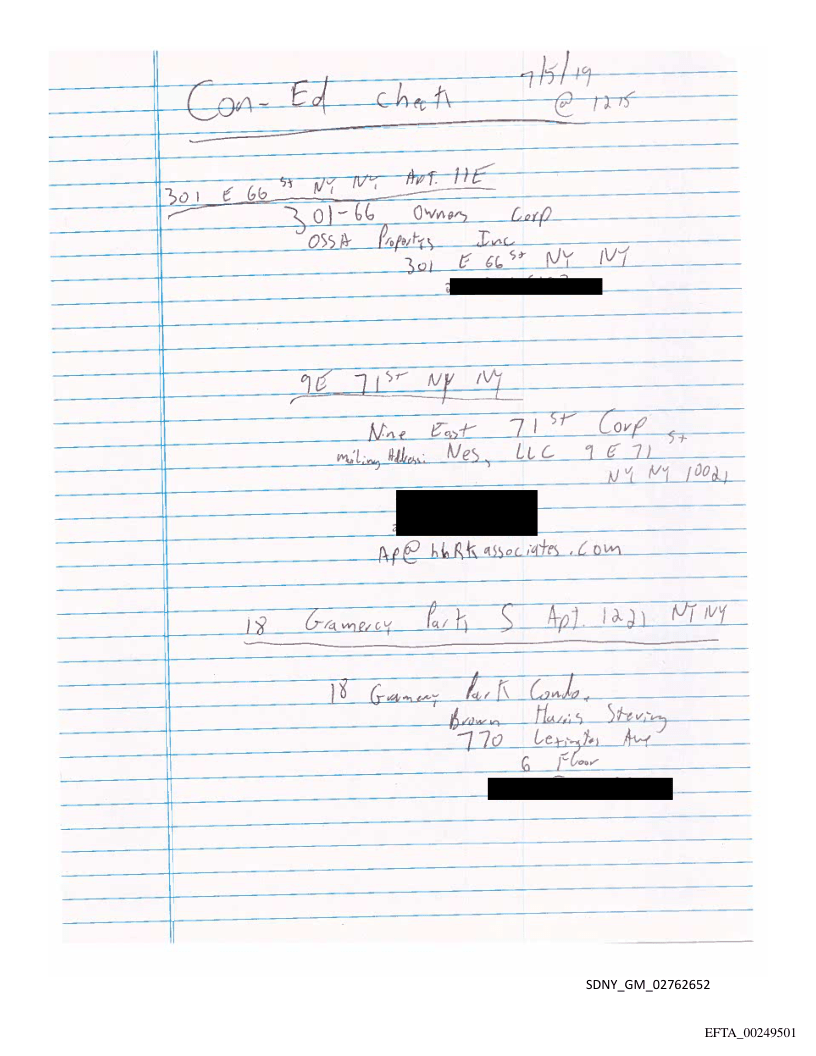 Con-Ed check
7/5/19
@ 1215
301 E 66 St NY NY Apt. 11E
301-66 Owners Corp
OSSA Properties Inc
301 E 66 St NY NY
9E 71 St NY NY
Nine East 71 St Corp
mailing Address: Nes, LLC 9 E 71 St
NY NY 10021
AP@hbRkassociates.com
18 Gramercy Park S Apt. 1221 NY NY
18 Gramercy Park Condo.
Brown Harris Steving
770 Lexington Ave
6 Floor
SDNY_GM_02762652
EFTA_00249501